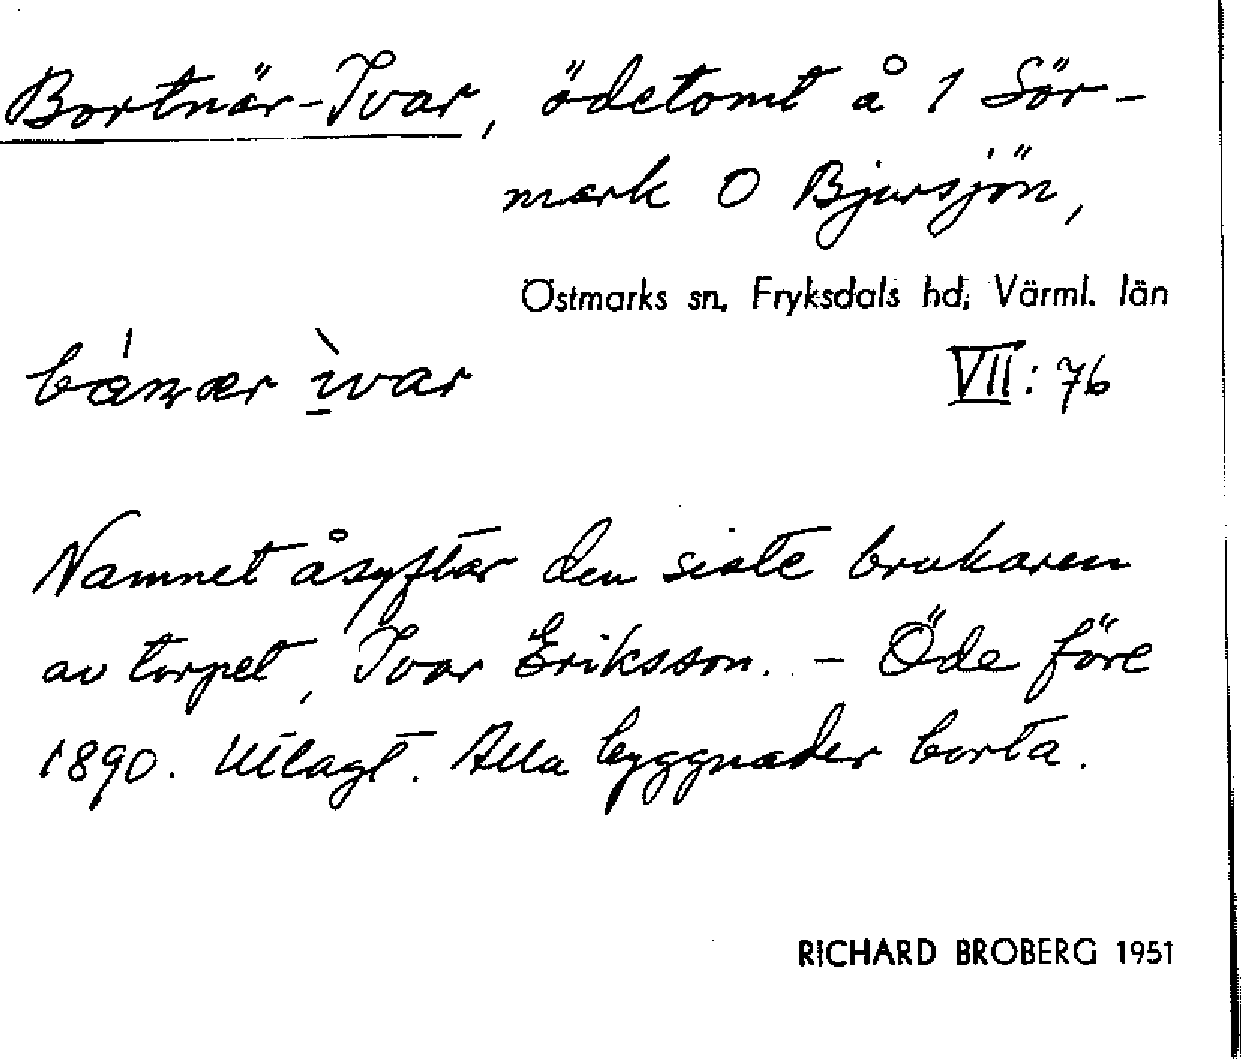 Bortnär-Ivar, ödetomt å 1 Sör-
mark O Bjursjön,
Östmarks sn, Fryksdals hd, Värml. län
VII: 76
Namnet åsyftar den siste brukaren
av torpet, Ivar Eriksson. - Öde före
1890. Utlagt. Alla byggnader borta.
RICHARD BROBERG 1951